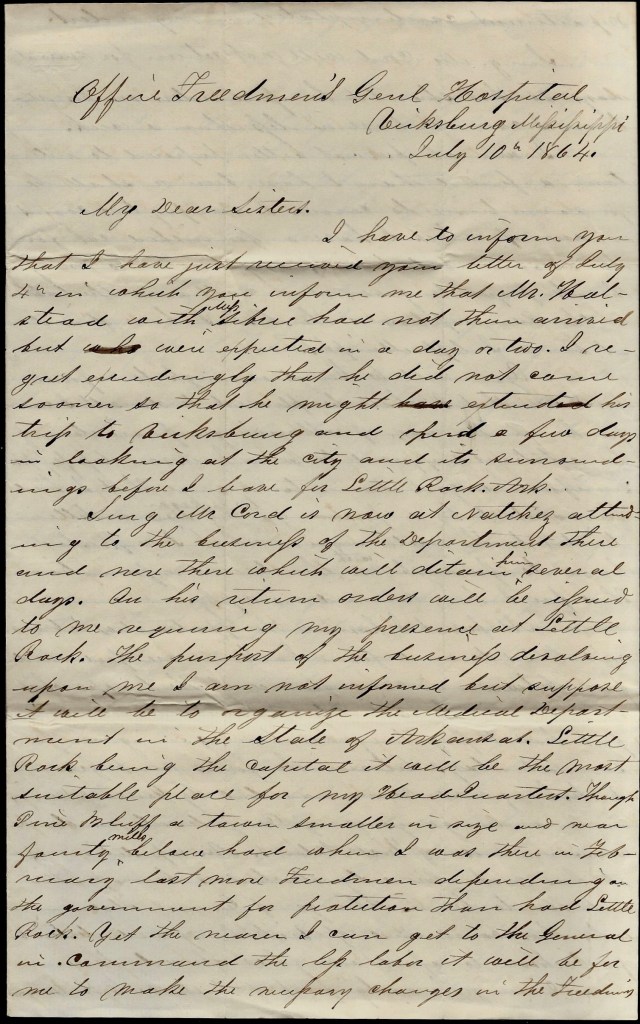 Office Freedmen's Genl Hospital
Vicksburg Mississippi
July 10th 1864.
My Dear Sisters.
I have to inform you
that I have just received your letter of July
4th in which you inform me that Mr. Hal-
stead with Miss Libbie had not then arrived
but were expected in a day or two. I re-
gret exceedingly that he did not come
sooner so that he might extended his
trip to Vicksburg and spend a few days
in looking at the city and its surround-
ings before I leave for Little Rock. Ark.
Surg Mc Cord is now at Natchez attend
ing to the business of the Department there
and near there which will detain him several
days. On his return orders will be issued
to me requiring my presence at Little
Rock. The purport of the business devolving
upon me I am not informed but suppose
it will be to organize the Medical Depart
ment in the State of Arkansas. Little
Rock being the capital it will be the most
suitable place for my Head Quarters. Though
Pine Bluff a town smaller in size and near
fourty miles below had when I was there in Feb-
ruary last more Freedmen depending on
the government for protection than had Little
Rock. Yet the nearer I can get to the General
in command the less labor it will be for
me to make the necessary changes in the Freedmens